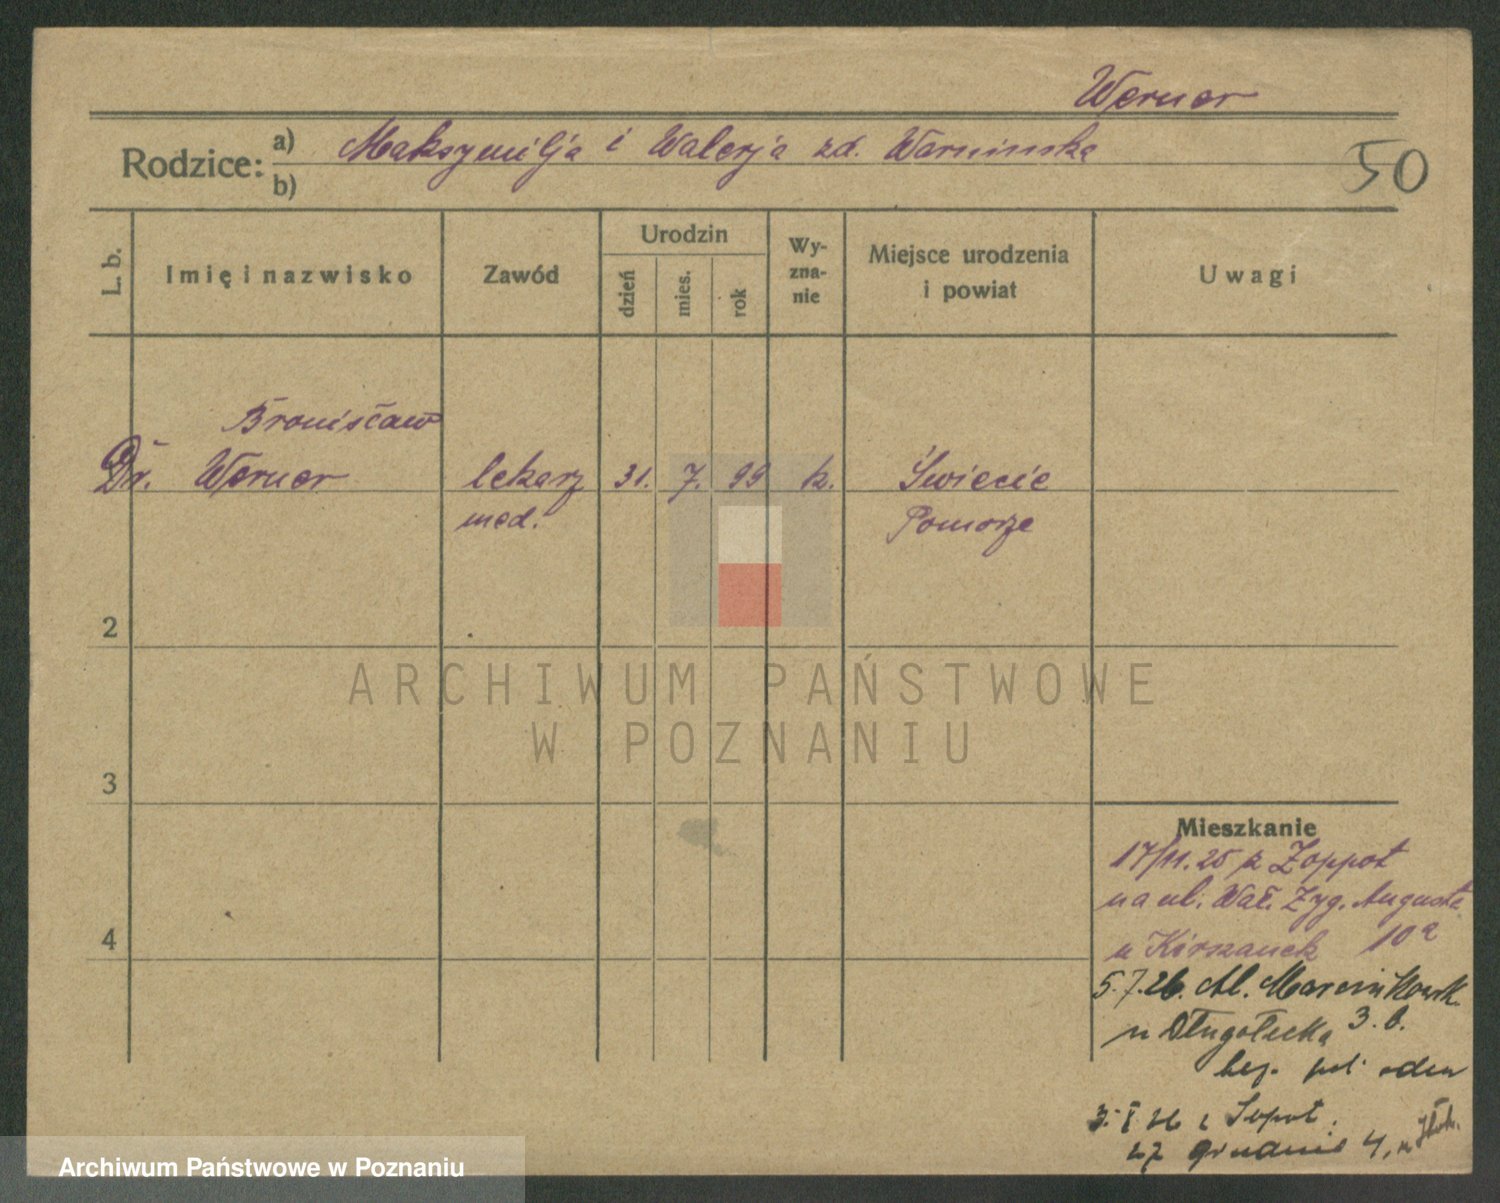 Werner
Rodzice: a) Maksymilja i Walerja zd. Warminska
b)
50
L. b. Imię i nazwisko Zawód Urodzin dzień mies. rok Wyznanie Miejsce urodzenia i powiat Uwagi
Bronisław
Dr. Werner lekarz 31. 7. 99 k. Świecie
med. Pomorze
2
ARCHIWUM PAŃSTWOWE
W POZNANIU
3
Mieszkanie
17/11.25 z Zoppot
na ul. Wał. Zyg. Augusta
u 10a
4
5.7.26. Al. Marcinkowsk.
u Długołecka 3. b.
3. I 26 z Sopot.
27 4, u
Archiwum Państwowe w Poznaniu